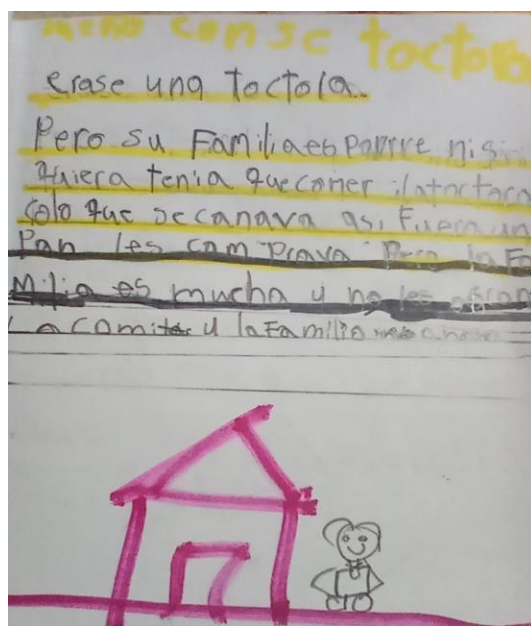 conse toctora
erase una toctola.
Pero su Familia es Povrre nisi
quiera tenia que comer ilatortora
solo que se canava asi Fuera un
Pan les comprava Pero la Fa
milia es mucha y no les
La comite y la Familia